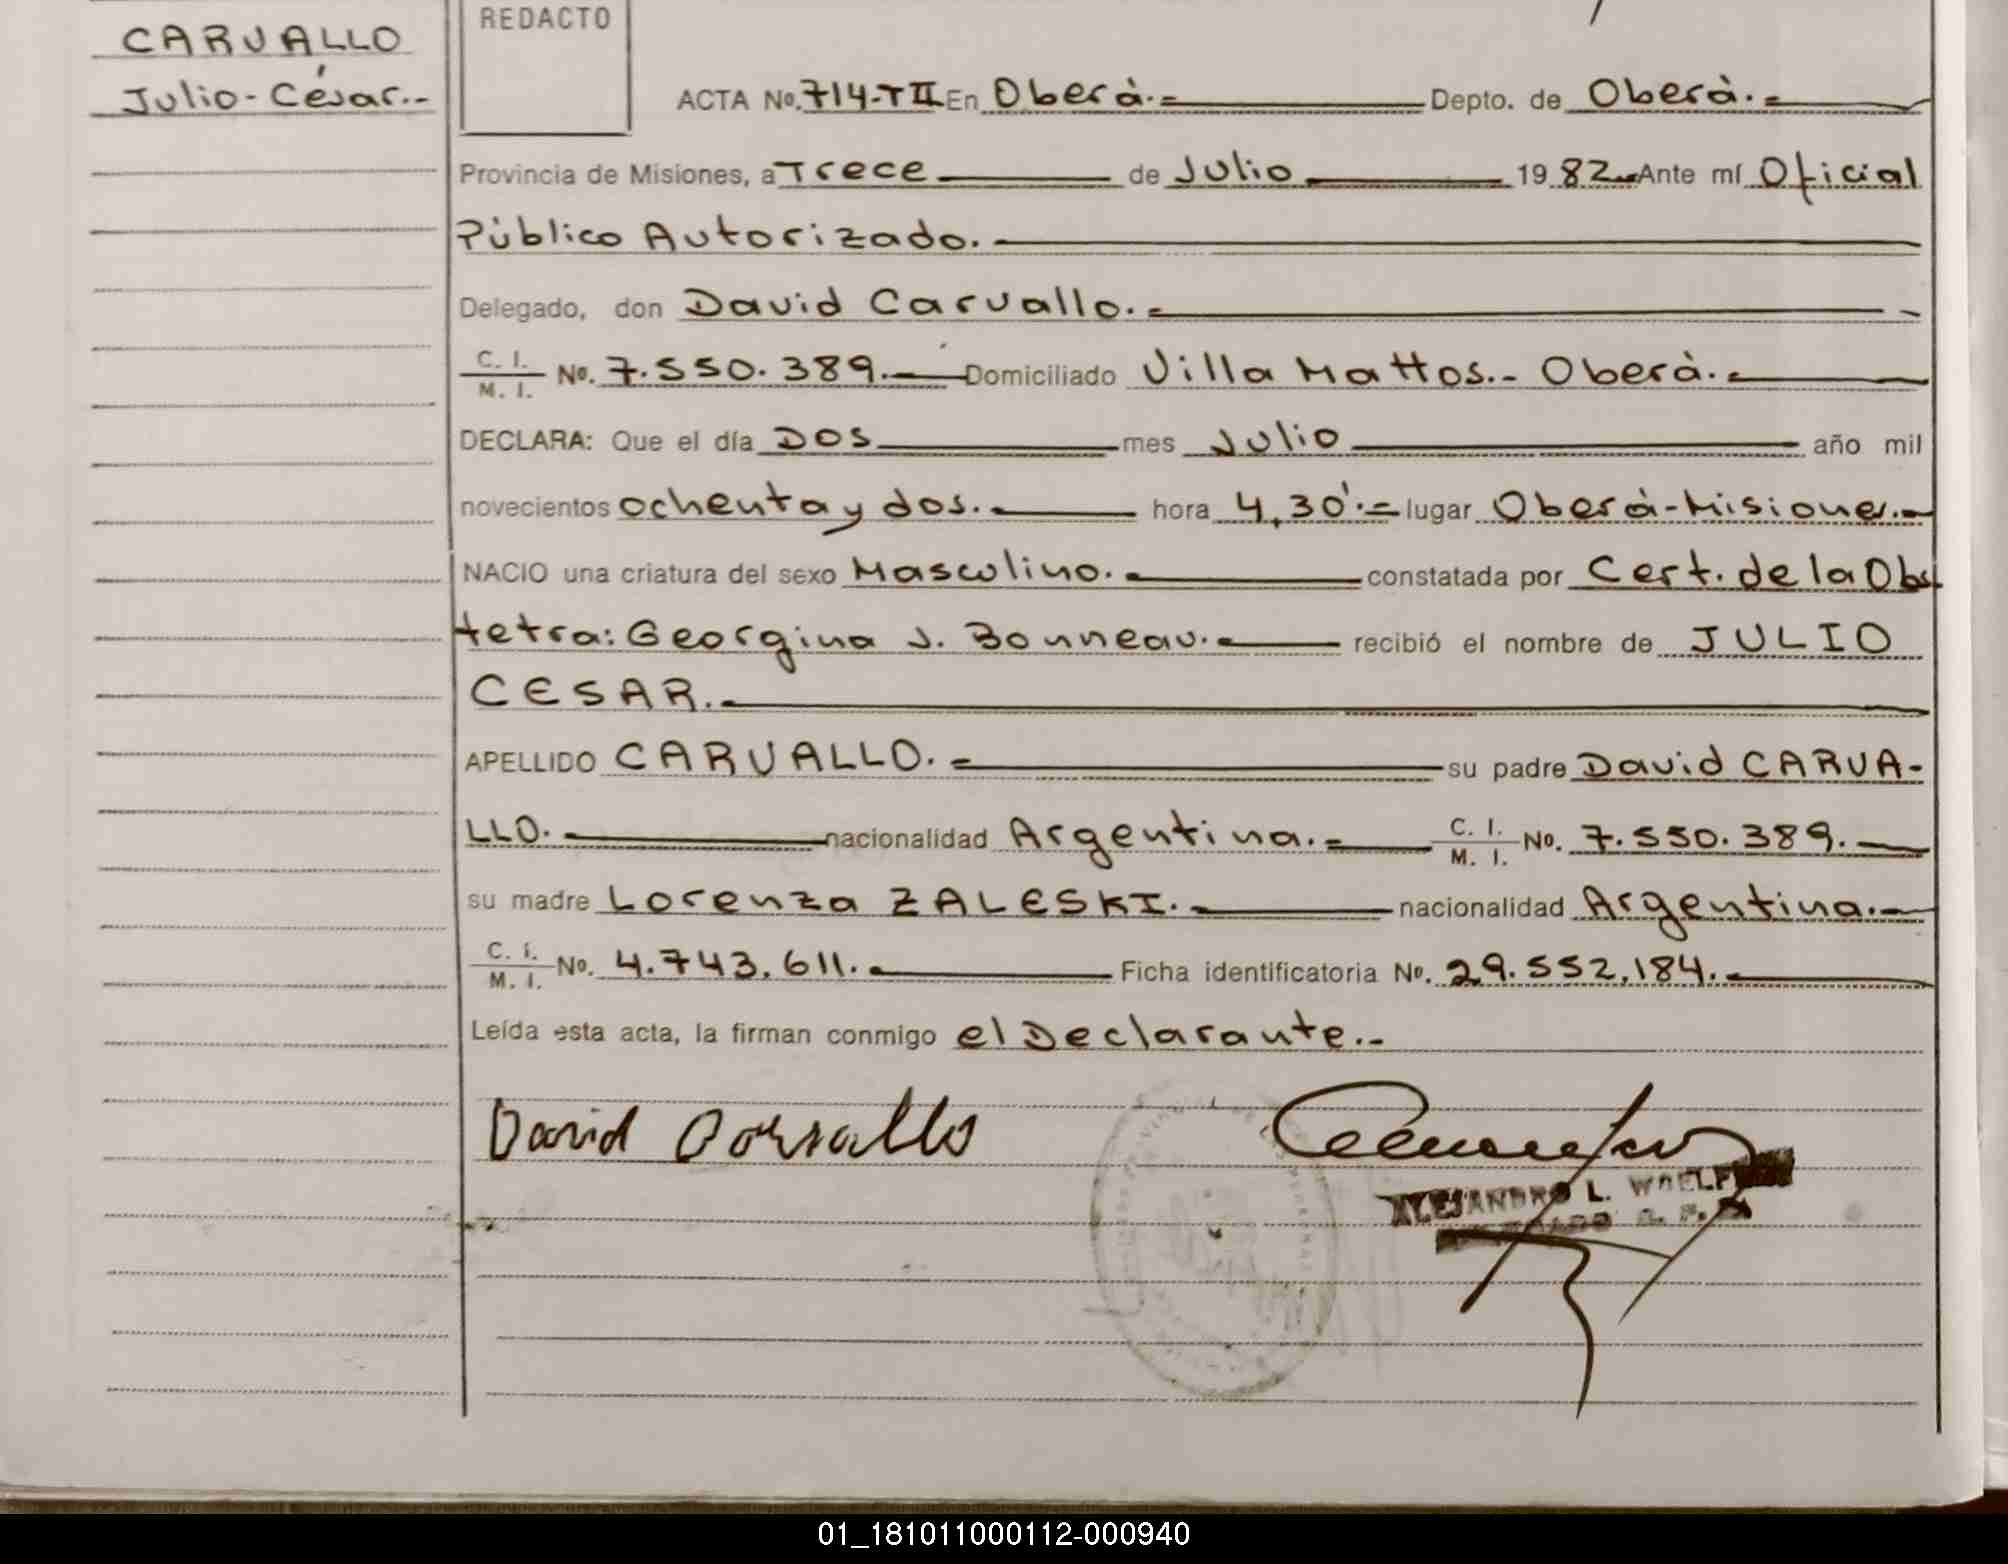 CARVALLO
Julio-César.-
REDACTO
ACTA No. 714-T II En Oberà.= Depto. de Oberà.=
Provincia de Misiones, a Trece de Julio 1982.- Ante mí Oficial
Público Autorizado.
Delegado, don David Carvallo.=
C. I.
M. I. No. 7.550.389.- Domiciliado Villa Mattos.- Oberà.-
DECLARA: Que el día DOS mes Julio año mil
novecientos ochenta y dos.- hora 4,30'.= lugar Oberà-Misiones.-
NACIO una criatura del sexo Masculino.- constatada por Cert. de la Obs
tetra: Georgina J. Bonneau.- recibió el nombre de JULIO
CESAR.-
APELLIDO CARVALLO.= su padre David CARVA-
LLO.- nacionalidad Argentina.= C. I.
M. I. No. 7.550.389.-
su madre Lorenza ZALESKI.- nacionalidad Argentina.-
C. I.
M. I. No. 4.743.611.- Ficha identificatoria No. 29.552,184.-
Leída esta acta, la firman conmigo el Declarante.-
David Carvallo
ALEJANDRO L.
01_181011000112-000940